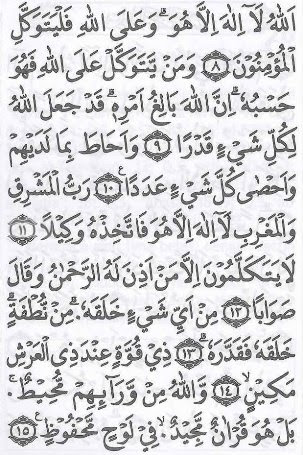 اَللّٰهُ لَآ اِلٰهَ اِلَّا هُوَ ؕ وَعَلَى اللّٰهِ فَلْيَتَوَكَّلِ
الْمُؤْمِنُوْنَ ﴿٨﴾ وَمَنْ يَّتَوَكَّلْ عَلَى اللّٰهِ فَهُوَ
حَسْبُهٗ ؕ اِنَّ اللّٰهَ بَالِغُ اَمْرِهٖ ؕ قَدْ جَعَلَ اللّٰهُ
لِكُلِّ شَيْءٍ قَدْرًا ﴿٩﴾ وَاَحَاطَ بِمَا لَدَيْهِمْ
وَاَحْصٰى كُلَّ شَيْءٍ عَدَدًا ﴿١٠﴾ رَبُّ الْمَشْرِقِ
وَالْمَغْرِبِ لَآ اِلٰهَ اِلَّا هُوَ فَاتَّخِذْهُ وَكِيْلًا ﴿١١﴾
لَا يَتَكَلَّمُوْنَ اِلَّا مَنْ اَذِنَ لَهُ الرَّحْمٰنُ وَقَالَ
صَوَابًا ﴿١٢﴾ مِنْ اَيِّ شَيْءٍ خَلَقَهٗ ؕ مِنْ نُّطْفَةٍ ؕ
خَلَقَهٗ فَقَدَّرَهٗ ﴿١٣﴾ ذِيْ قُوَّةٍ عِنْدَ ذِي الْعَرْشِ
مَكِيْنٍ ﴿١٤﴾ وَّاللّٰهُ مِنْ وَّرَآئِهِمْ مُّحِيْطٌ ۚ
بَلْ هُوَ قُرْاٰنٌ مَّجِيْدٌ ۙ فِيْ لَوْحٍ مَّحْفُوْظٍ ﴿١٥﴾